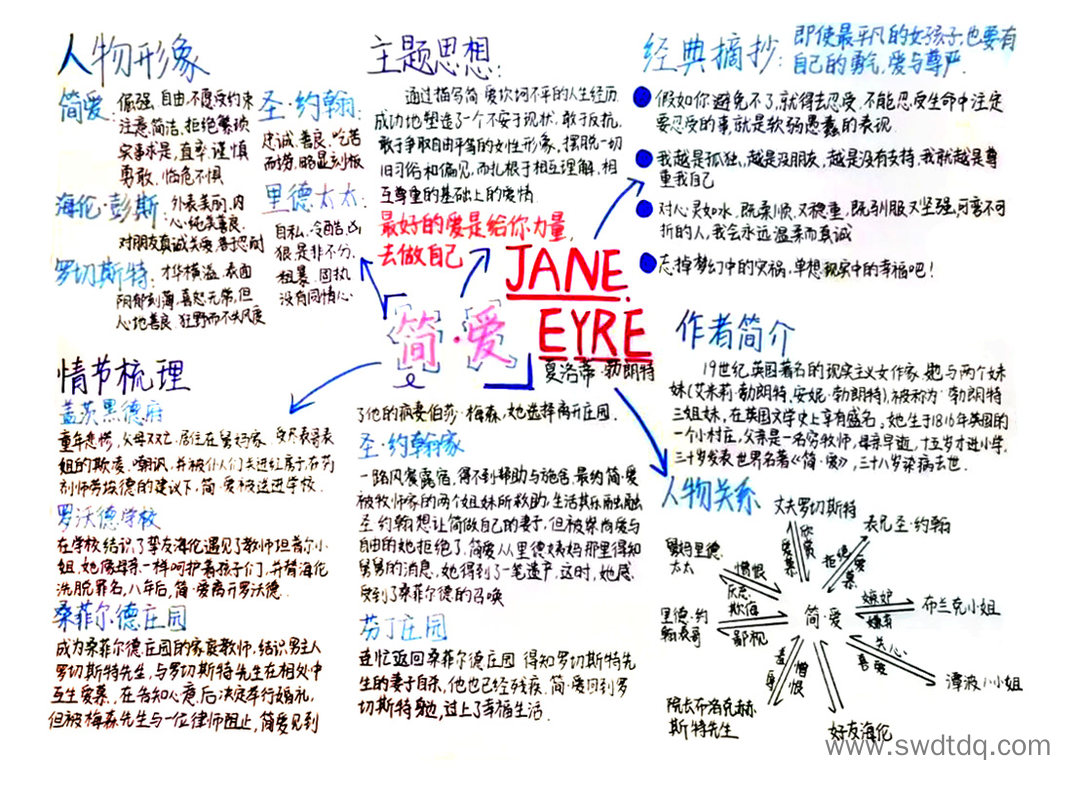 人物形象
简爱: 倔强、自由、不愿受约束
注意简洁、拒绝繁琐
实事求是,直率、谨慎
勇敢、临危不惧
圣·约翰:
忠诚、善良、吃苦
而劳,略显刻板
海伦·彭斯: 外表美丽、内
心纯美善良、
对朋友真诚关爱、善于忍耐
里德太太:
自私、冷酷、凶
狠、是非不分、
粗暴、固执
没有同情心
罗切斯特: 才华横溢、表面
阴郁刻薄、喜怒无常,但
心地善良、狂野而不失风度
主题思想:
通过描写简·爱坎坷不平的人生经历
成功地塑造了一个不安于现状、敢于反抗、
敢于争取自由平等的女性形象,摆脱一切
旧习俗和偏见,而扎根于相互理解,相
互尊重的基础上的爱情
最好的爱是给你力量,
去做自己
经典摘抄: 即使最平凡的女孩子,也要有
自己的勇气,爱与尊严.
假如你避免不了,就得去忍受,不能忍受生命中注定
要忍受的事,就是软弱愚蠢的表现.
我越是孤独,越是没朋友,越是没有支持,我就越是尊
重我自己
对心灵如水,既柔顺,又稳重,既驯服又坚强,可弯不可
折的人,我会永远温柔而真诚
忘掉梦幻中的灾祸,单想现实中的幸福吧!
JANE
EYRE
简·爱
夏洛蒂·勃朗特
情节梳理
盖茨黑德府
童年悲惨,父母双亡,居住在舅妈家,受尽表哥表
姐的欺凌、嘲讽,并被仆人们关进红房子在药
剂师劳埃德的建议下,简·爱被送进学校.
罗沃德学校
在学校结识了挚友海伦遇见了教师坦普尔小
姐,她像母亲一样呵护着孩子们,并替海伦
洗脱罪名,八年后,简·爱离开罗沃德.
桑菲尔德庄园
成为桑菲尔德庄园的家庭教师,结识男主人
罗切斯特先生,与罗切斯特先生在相处中
互生爱慕,在告知心意后决定举行婚礼,
但被梅森先生与一位律师阻止,简爱见到
了他的疯妻伯莎·梅森,她选择离开庄园.
圣·约翰家
一路风餐露宿,得不到帮助与施舍,最终简·爱
被牧师家的两个姐妹所救助,生活其乐融融
圣·约翰想让简做自己的妻子,但被崇尚爱与
自由的她拒绝了,简爱从里德姨妈那里得知
舅舅的消息,她得到了一笔遗产,这时,她感
受到了桑菲尔德的召唤
芬丁庄园
连忙返回桑菲尔德庄园 得知罗切斯特先
生的妻子自杀,他也已经残疾,简·爱回到罗
切斯特身边,过上了幸福生活.
作者简介
19世纪,英国著名的现实主义女作家,她与两个妹
妹(艾米莉·勃朗特,安妮·勃朗特),被称为·勃朗特
三姐妹,在英国文学史上享有盛名。她生于1816年英国的
一个小村庄,父亲是一名穷牧师,母亲早逝,十五岁才进小学,
三十岁发表世界名著《简·爱》,三十八岁染病去世.
人物关系
丈夫罗切斯特
欣赏
爱慕
表兄圣·约翰
拒绝
爱慕
舅妈里德
太太
憎恨
厌恶
里德·约
翰表哥
欺侮
鄙视
简·爱
嫉妒
嫌弃
布兰克小姐
关心
喜爱
谭波儿小姐
憎恨
羞辱
院长布洛克赫
斯特先生
好友海伦
www.swdtdq.com